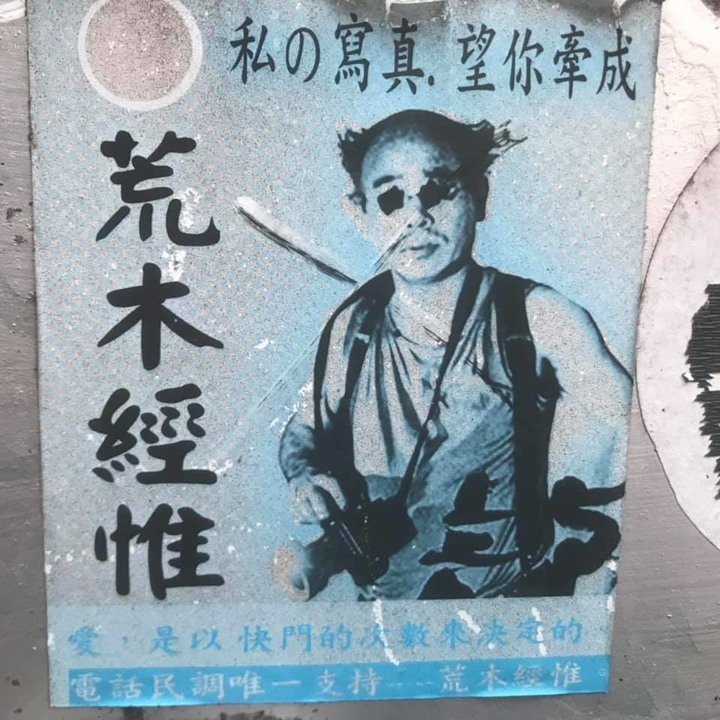 私の寫真.望你牽成
荒木經惟
愛，是以快門的次數來決定的。
電話民調唯一支持......荒木經惟